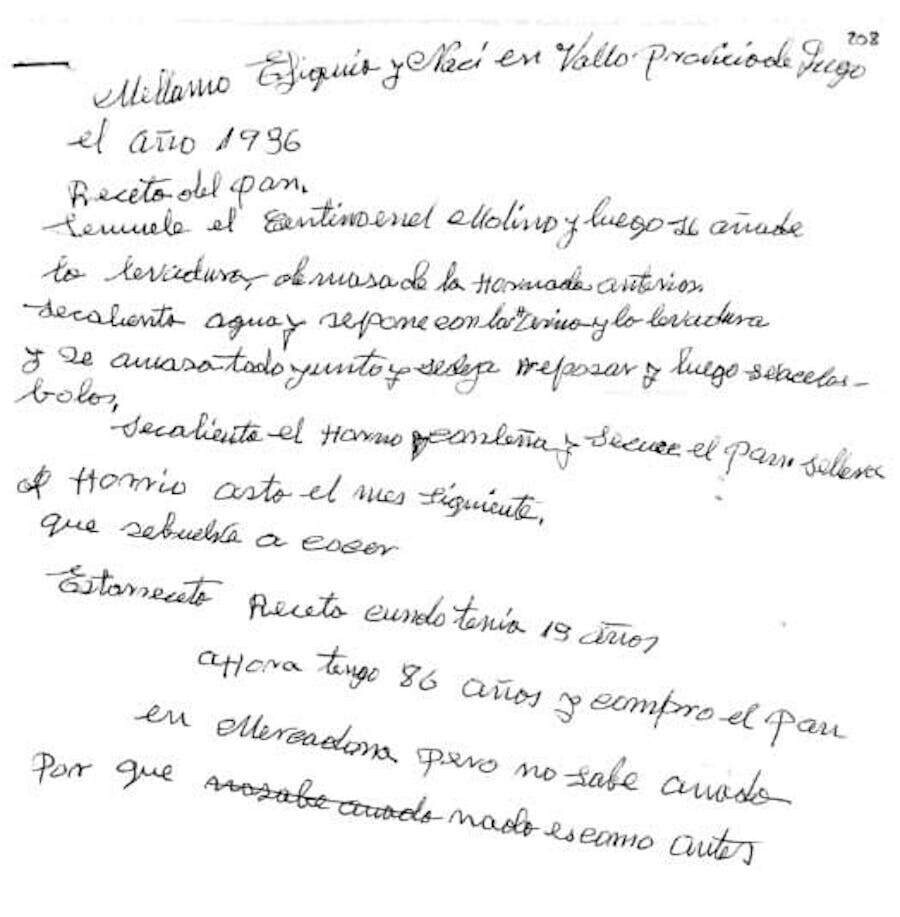 208
Millamo Efiquio y Naci en Vallo Provicio de Lugo
el año 1936
Receto del pan.
Semuele el Sentinoenel Molino y luego se añade
la levadura, de masa de la Hornada anterior.
Secaliento agua y sepone con la Arina y lo levadura
y se amasa todo yunto y sedeja reposar y luego seacelas
bolos,
Secaliento el Horno y conleña y secuece el pan. sellena
el Hornio asta el mes siguiente.
que sebuelva a cocer
Receto cundo tenía 19 años
aHora tengo 86 años y compro el pan
en Mercadona pero no sabe anado
Por que nosabe anado nado escomo antes